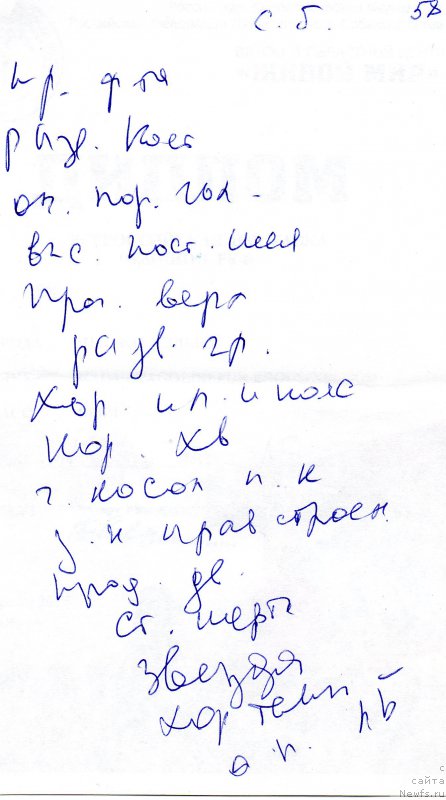 С. Б. 58
кр. ф тя
разв. кост
оп. пор. гол -
выс. пост. шея
пра. верх
разв. гр.
хор. и п. и пояс
кор. хв
г. косол п. к
з. к прав строен.
прод. дв.
ст. шерть
звезда
хор темп
о п.
с
сайта
Newfs.ru